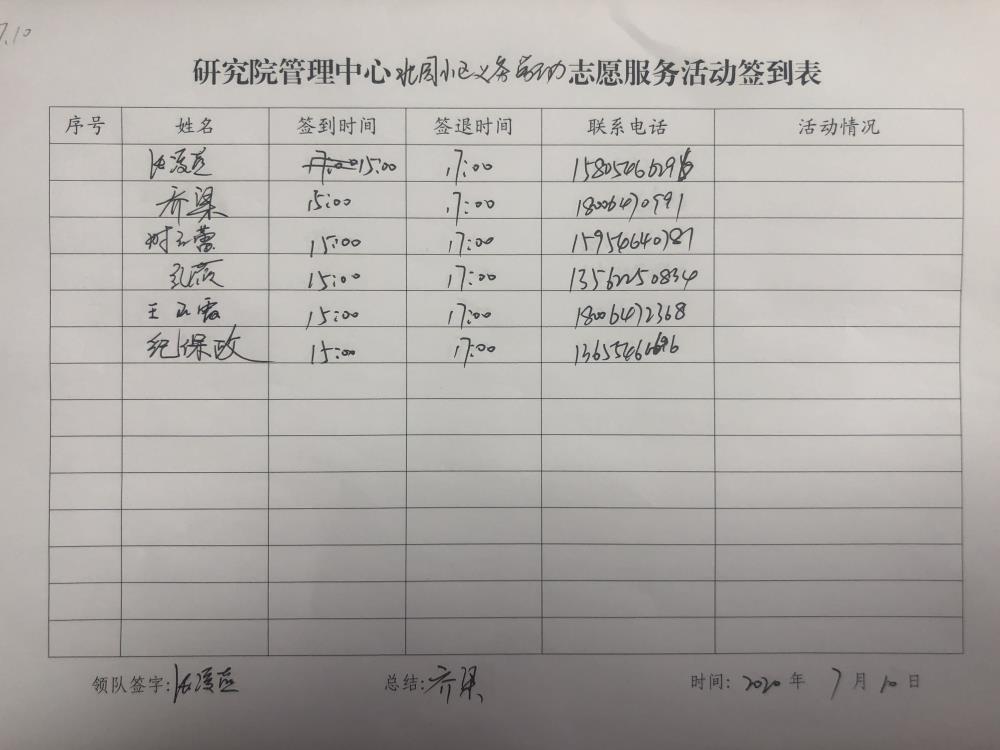 7.10
研究院管理中心北园小区义务劳动志愿服务活动签到表
序号 姓名 签到时间 签退时间 联系电话 活动情况
15:00 17:00
乔梁 15:00 17:00 18006470991
15:00 17:00 15954640787
孔薇 15:00 17:00 13562250834
王玉霞 15:00 17:00 18006472368
纪保政 15:00 17:00
领队签字: 总结:乔梁 时间: 2020 年 7 月 10 日